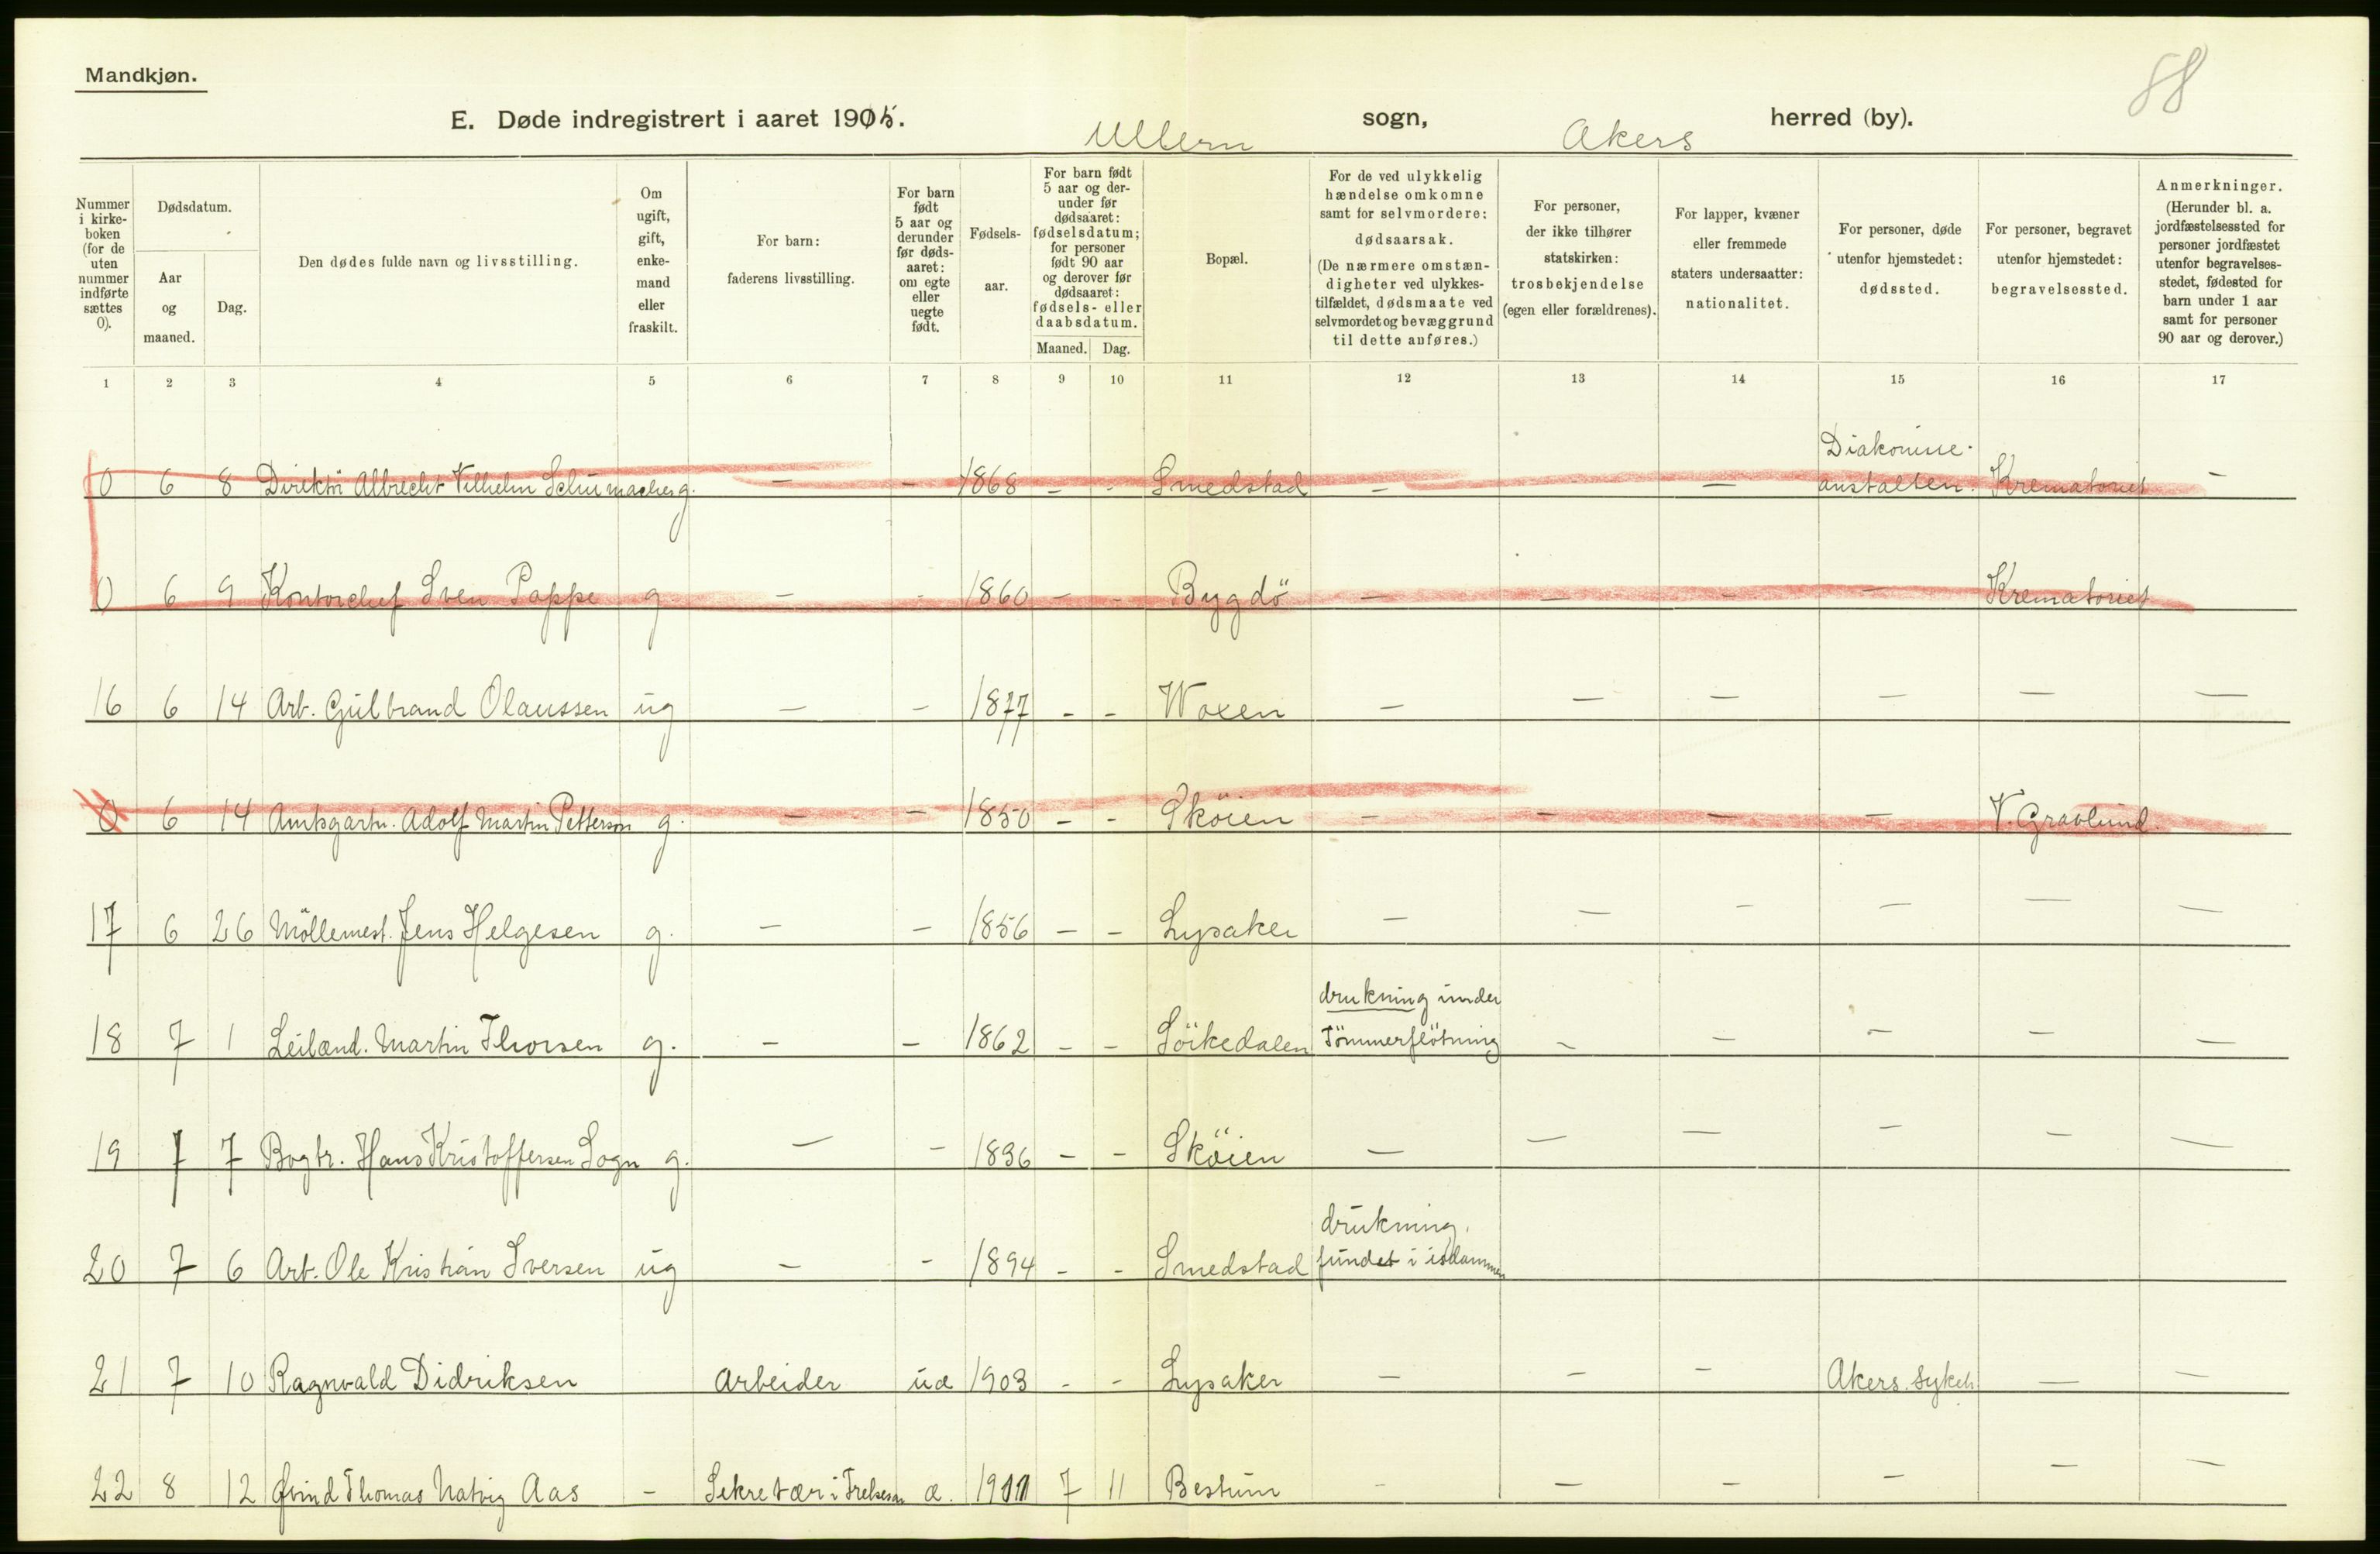 Mandkjøn.
88
E. Døde indregistrert i aaret 1915. Ullern sogn, Akers herred (by).
Nummer i kirke-boken (for de uten nummer indførte sættes 0).
Dødsdatum.
Aar og maaned.
Dag.
Den dødes fulde navn og livsstilling.
Om ugift, gift, enke-mand eller fraskilt.
For barn: faderens livsstilling.
For barn født 5 aar og derunder før døds-aaret: om egte eller uegte født.
Fødsels-aar.
For barn født 5 aar og der-under før dødsaaret: fødselsdatum; for personer født 90 aar og derover før dødsaaret: fødsels- eller daabsdatum.
Maaned. Dag.
Bopæl.
For de ved ulykkelig hændelse omkomne samt for selvmordere: dødsaarsak. (De nærmere omstæn-digheter ved ulykkes-tilfældet, dødsmaate ved selvmordet og bevæggrund til dette anføres.)
For personer, der ikke tilhører statskirken: trosbekjendelse (egen eller forældrenes).
For lapper, kvæner eller fremmede staters undersaatter: nationalitet.
For personer, døde utenfor hjemstedet: dødssted.
For personer, begravet utenfor hjemstedet: begravelsessted.
Anmerkninger. (Herunder bl. a. jordfæstelsessted for personer jordfæstet utenfor begravelses-stedet, fødested for barn under 1 aar samt for personer 90 aar og derover.)
1 2 3 4 5 6 7 8 9 10 11 12 13 14 15 16 17
0 6 8 Direktör Albrecht Vilhelm Schumacher g. – – 1868 – – Smedstad – – Diakonisse-anstalten. Krematoriet –
0 6 9 Kontorchef Sven Pappe g – – 1860 – – Bygdö – – – – Krematoriet
16 6 14 Arb. Gulbrand Olaussen ug – – 1877 – – Woxen – – – – – –
0 6 14 Amtsgartn. Adolf Martin Petterson g. – – 1850 – – Sköien – – – – V. Gravlund.
17 6 26 Möllemest. Jens Helgesen g. – – 1856 – – Lysaker – – – – – –
18 7 1 Leilænd. Martin Thorsen g. – – 1862 – – Sörkedalen drukning under Tömmerflötning – – – – –
19 7 7 Bogtr. Hans Kristoffersen Sogn g. – – 1836 – – Sköien – – – – – –
20 7 6 Arb. Ole Kristian Iversen ug – – 1894 – – Smedstad drukning. fundet i isdammen
21 7 10 Ragnvald Didriksen Arbeider uæ 1903 – – Lysaker – – – Akers. Sykeh – –
22 8 12 Øvind Thomas Natvig Aas – Sekretær i æ. 1911 7 11 Bestum – – – – – –